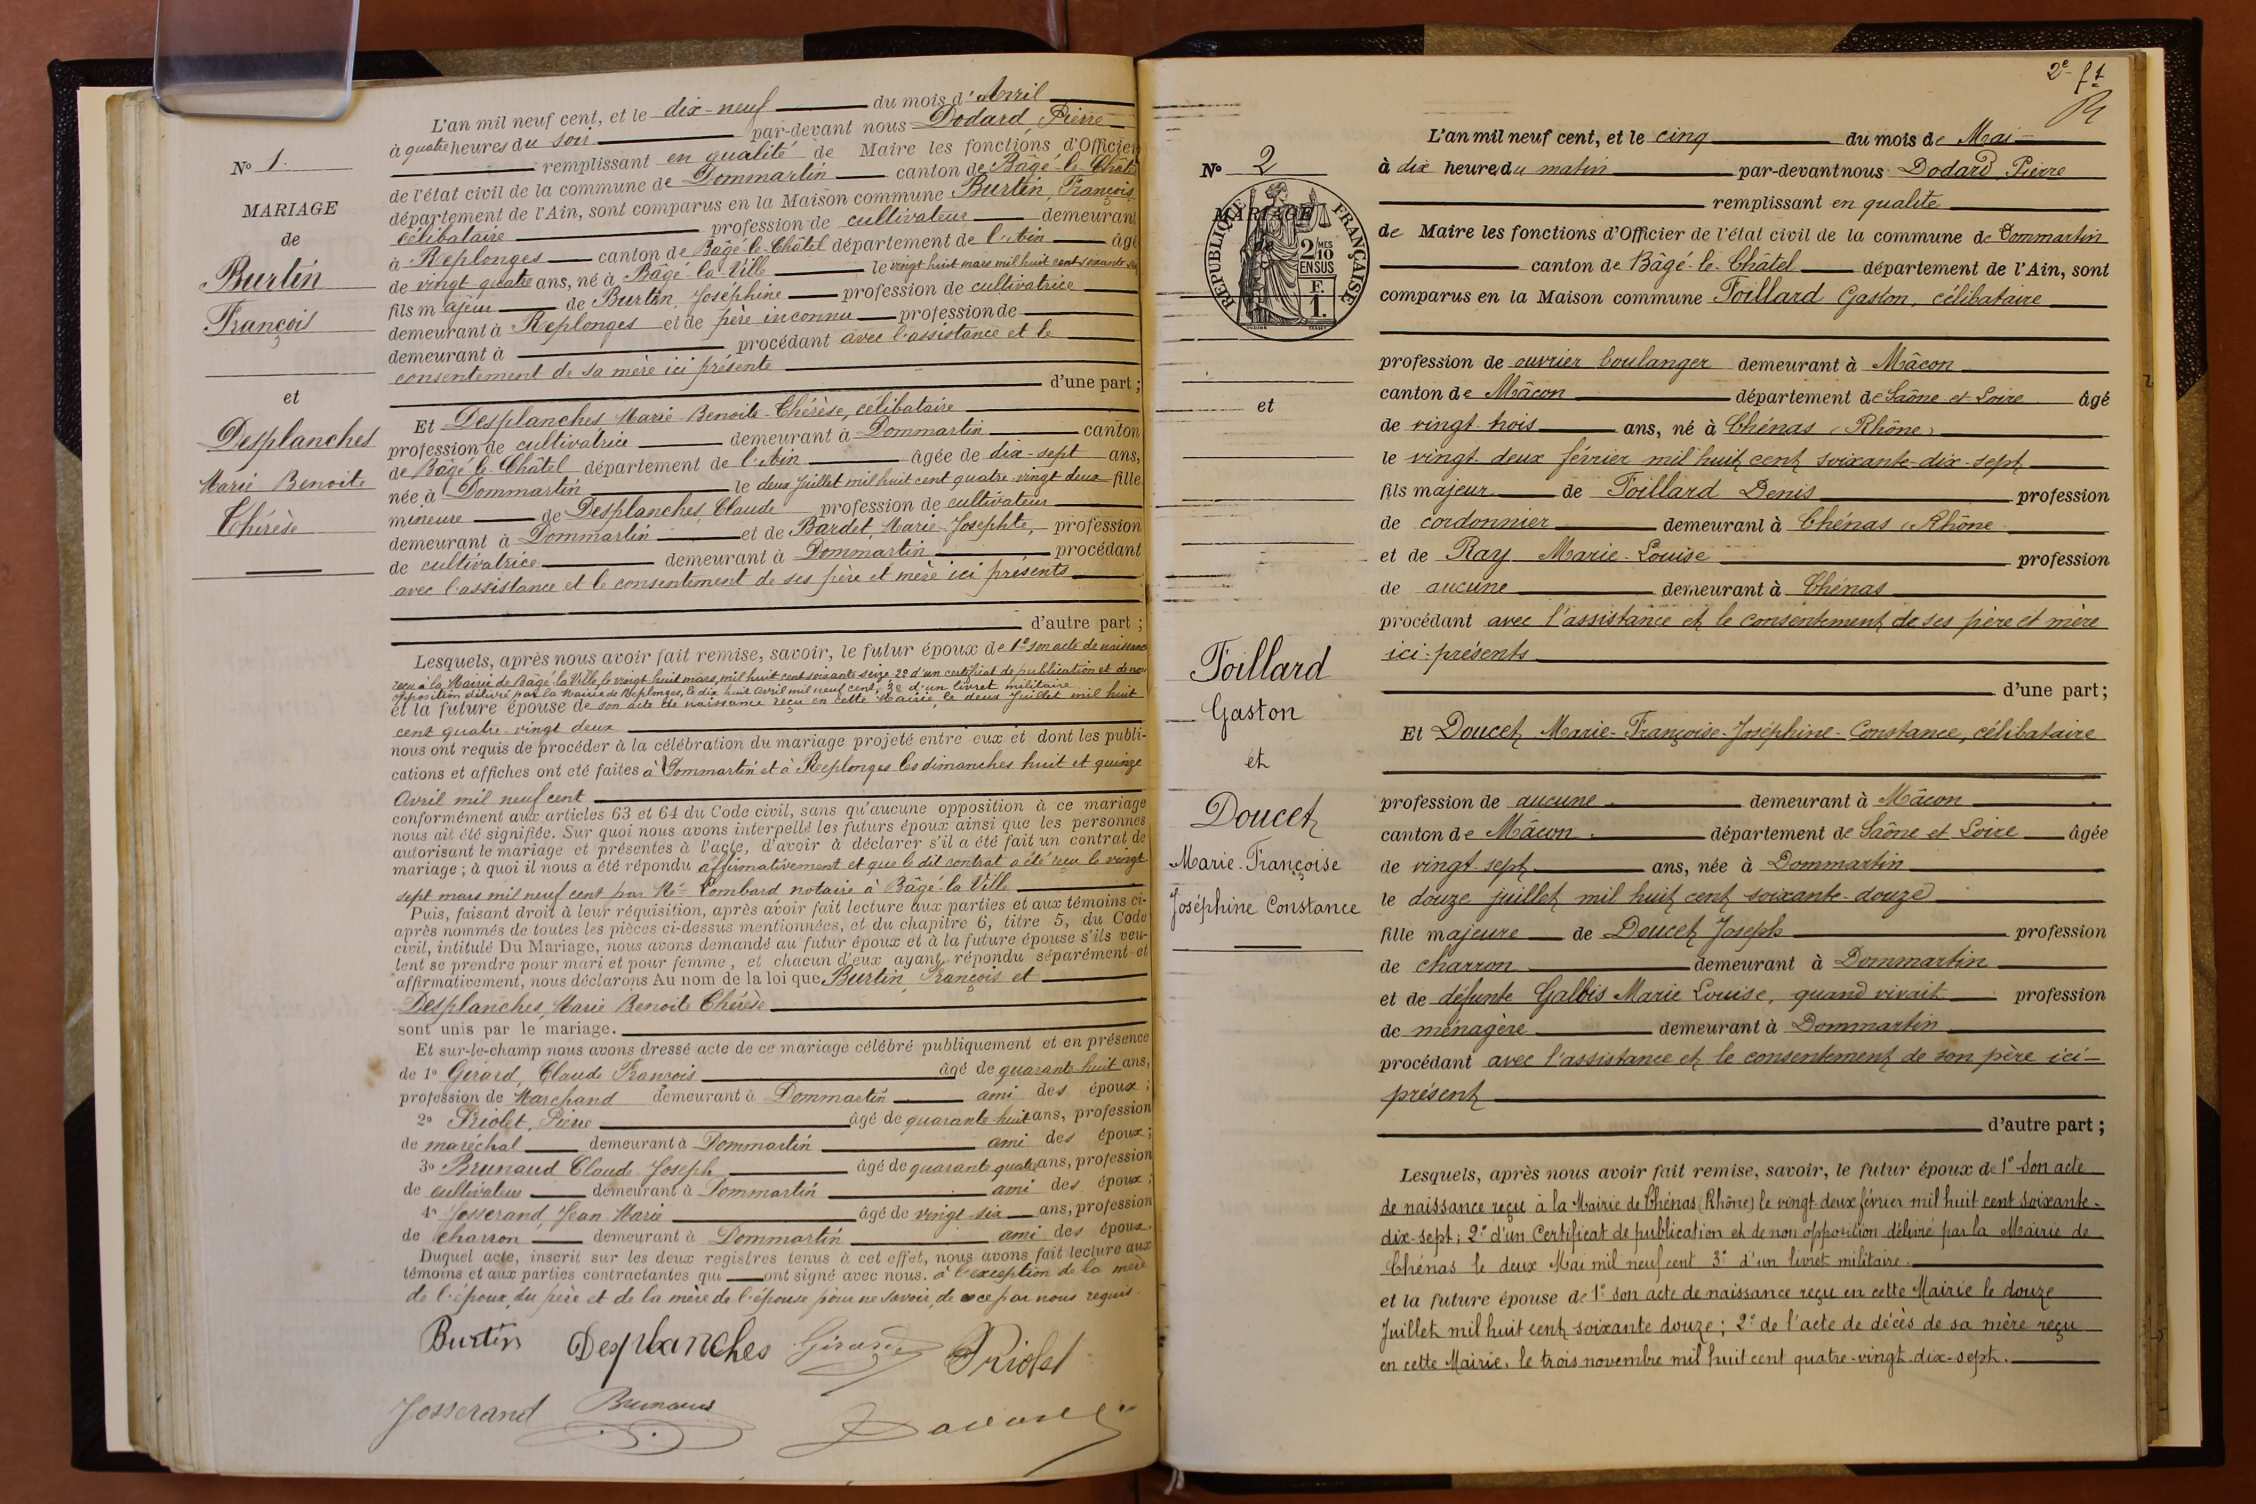 N° 1.
MARIAGE
de
Burtin
François
et
Desplanches
Marie Benoite
Thérèse
L'an mil neuf cent, et le dix-neuf du mois d'Avril
à quatre heures du soir par-devant nous Dodard, Pierre
remplissant en qualité de Maire les fonctions d'Officier
de l'état civil de la commune de Dommartin canton de Bâgé-le-Châtel
département de l'Ain, sont comparus en la Maison commune Burtin, François,
célibataire profession de cultivateur demeurant
à Replonges canton de Bâgé-le-Châtel département de l'Ain âgé
de vingt quatre ans, né à Bâgé-la-Ville le vingt huit mars mil huit cent soixante seize
fils majeur de Burtin, Joséphine profession de cultivatrice
demeurant à Replonges et de père inconnu profession de
demeurant à procédant avec l'assistance et le
consentement de sa mère ici présente
d'une part;
Et Desplanches Marie Benoite-Thérèse, célibataire
profession de cultivatrice demeurant à Dommartin canton
de Bâgé-le-Châtel département de l'Ain âgée de dix-sept ans,
née à Dommartin le deux Juillet mil huit cent quatre-vingt deux fille
mineure de Desplanches, Claude profession de cultivateur
demeurant à Dommartin et de Bardet, Marie-Josephte, profession
de cultivatrice demeurant à Dommartin procédant
avec l'assistance et le consentement de ses père et mère ici présents
d'autre part;
Lesquels, après nous avoir fait remise, savoir, le futur époux de 1° son acte de naissance
reçu à la Mairie de Bâgé-la-Ville, le vingt huit mars, mil huit cent soixante seize 2° d'un certificat de publication et de non
opposition délivré par la Mairie de Replonges, le dix huit Avril mil neuf cent, 3° d'un livret militaire
et la future épouse de son acte de naissance reçu en cette Mairie, le deux Juillet mil huit
cent quatre-vingt deux
nous ont requis de procéder à la célébration du mariage projeté entre eux et dont les publi-
cations et affiches ont été faites à Dommartin et à Replonges les dimanches huit et quinze
Avril mil neuf cent
conformément aux articles 63 et 64 du Code civil, sans qu'aucune opposition à ce mariage
nous ait été signifiée. Sur quoi nous avons interpellé les futurs époux ainsi que les personnes
autorisant le mariage et présentes à l'acte, d'avoir à déclarer s'il a été fait un contrat de
mariage; à quoi il nous a été répondu affirmativement et que le dit contrat a été reçu le vingt
sept mars mil neuf cent par Me Lombard notaire à Bâgé-la-Ville
Puis, faisant droit à leur réquisition, après avoir fait lecture aux parties et aux témoins ci-
après nommés de toutes les pièces ci-dessus mentionnées, et du chapitre 6, titre 5, du Code
civil, intitulé Du Mariage, nous avons demandé au futur époux et à la future épouse s'ils veu-
lent se prendre pour mari et pour femme, et chacun d'eux ayant répondu séparément et
affirmativement, nous déclarons Au nom de la loi que Burtin François et
Desplanches, Marie Benoite Thérèse
sont unis par le mariage.
Et sur-le-champ nous avons dressé acte de ce mariage célébré publiquement et en présence
de 1° Gérard, Claude François âgé de quarante huit ans,
profession de Marchand demeurant à Dommartin ami des époux;
2° Priolet, Pierre âgé de quarante huit ans, profession
de maréchal demeurant à Dommartin ami des époux;
3° Brunaud Claude Joseph âgé de quarante quatre ans, profession
de cultivateur demeurant à Dommartin ami des époux;
4° Josserand, Jean Marie âgé de vingt six ans, profession
de charron demeurant à Dommartin ami des époux.
Duquel acte, inscrit sur les deux registres tenus à cet effet, nous avons fait lecture aux
témoins et aux parties contractantes qui ont signé avec nous. à l'exception de la mère
de l'époux, du père et de la mère de l'épouse pour ne savoir, de ce par nous requis.
Burtin Desplanches Girard Priolet
Josserand Brunaud Dodard
2e ft
N° 2
MARIAGE
RÉPUBLIQUE FRANÇAISE
2/10 MES
EN SUS
F.
1.
et
Foillard
Gaston
et
Doucet
Marie-Françoise
Joséphine Constance
L'an mil neuf cent, et le cinq du mois de Mai
à dix heure du matin par-devant nous Dodard Pierre
remplissant en qualité
de Maire les fonctions d'Officier de l'état civil de la commune de Dommartin
canton de Bâgé-le-Châtel département de l'Ain, sont
comparus en la Maison commune Foillard Gaston, célibataire
profession de ouvrier boulanger demeurant à Mâcon
canton de Mâcon département de Saône et Loire âgé
de vingt-trois ans, né à Chénas (Rhône)
le vingt-deux février mil huit cent soixante-dix-sept
fils majeur de Foillard Denis profession
de cordonnier demeurant à Chénas (Rhône
et de Ray Marie-Louise profession
de aucune demeurant à Chénas
procédant avec l'assistance et le consentement de ses père et mère
ici-présents
d'une part;
Et Doucet Marie-Françoise-Joséphine-Constance, célibataire
profession de aucune demeurant à Mâcon
canton de Mâcon département de Saône et Loire âgée
de vingt-sept ans, née à Dommartin
le douze juillet mil huit cent soixante-douze
fille majeure de Doucet Joseph profession
de charron demeurant à Dommartin
et de défunte Galbis Marie Louise, quand vivait profession
de ménagère demeurant à Dommartin
procédant avec l'assistance et le consentement de son père ici-
présent
d'autre part;
Lesquels, après nous avoir fait remise, savoir, le futur époux de 1° Son acte
de naissance reçu à la Mairie de Chénas (Rhône) le vingt-deux février mil huit cent soixante-
dix-sept; 2° d'un Certificat de publication et de non opposition délivré par la Mairie de
Chénas le deux Mai mil neuf cent 3° d'un livret militaire.
et la future épouse de 1° Son acte de naissance reçu en cette Mairie le douze
Juillet mil huit cent soixante douze; 2° de l'acte de décès de sa mère reçu
en cette Mairie, le trois novembre mil huit cent quatre-vingt-dix-sept.